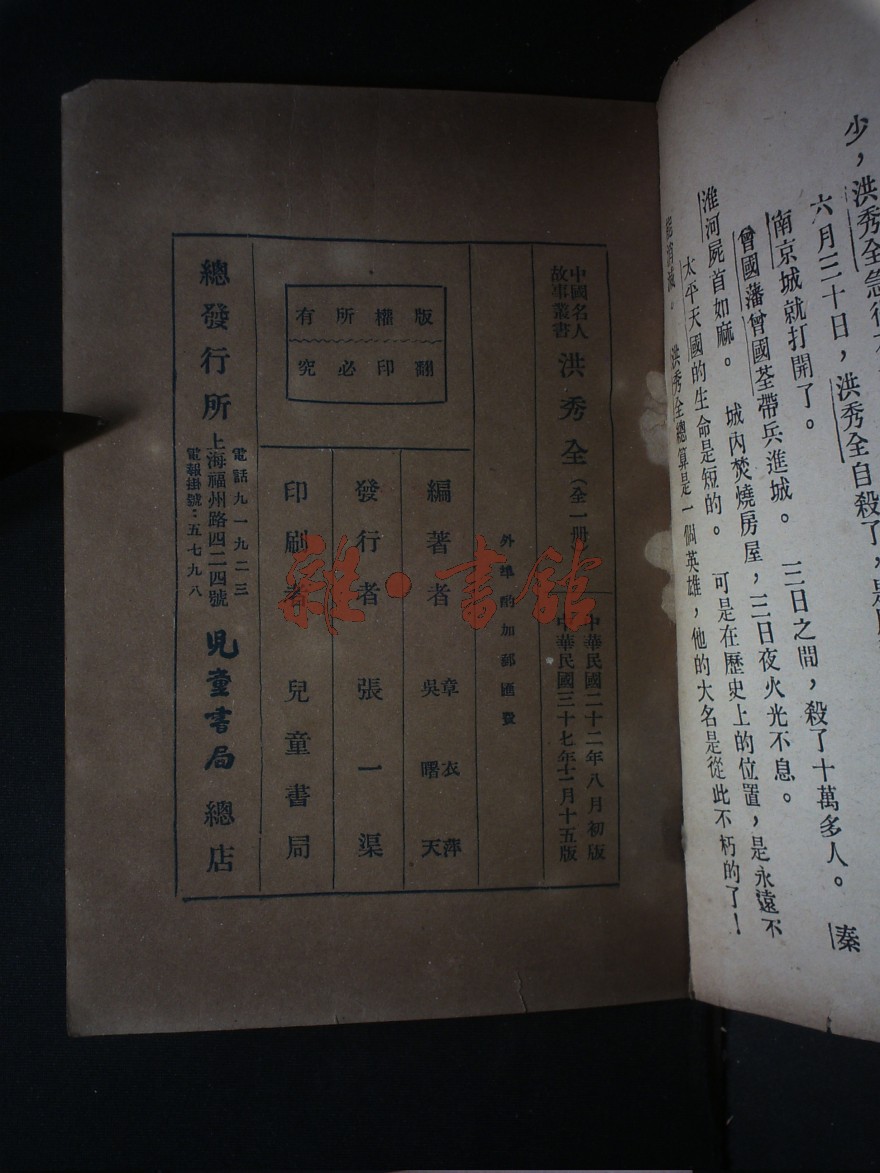 少，洪秀全急得
六月三十日，洪秀全自殺了，是
南京城就打開了。
曾國藩曾國荃帶兵進城。　三日之間，殺了十萬多人。　秦
淮河屍首如麻。　城內焚燒房屋，三日夜火光不息。
太平天國的生命是短的。　可是在歷史上的位置，是永遠不
洪秀全總算是一個英雄，他的大名是從此不朽的了！
中國名人
故事叢書
洪秀全（全一册
中華民國二十二年八月初版
中華民國三十七年十一月十五版
外埠酌加郵匯費
版權所有
翻印必究
編著者　章衣萍
吳曙天
發行者　張一渠
印刷者　兒童書局
總發行所
電話九一九二三
上海福州路四二四號
電報掛號：五七九八
兒童書局總店
雜·書館